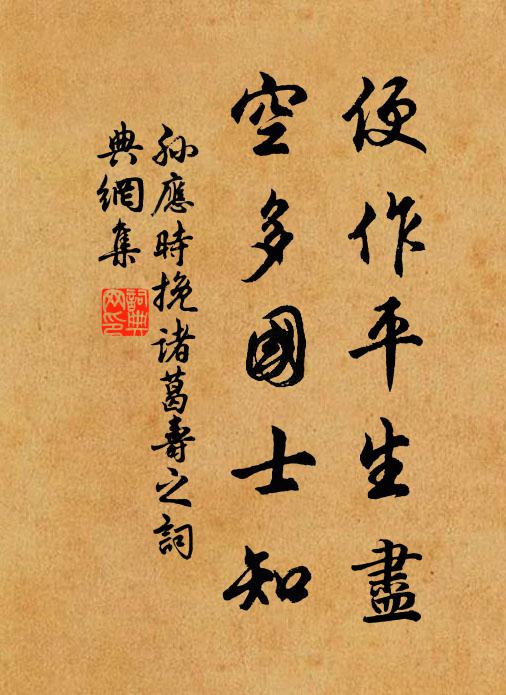 便作平生盡
空多國士知
孫應時挽諸葛壽之詞
典網集
詞典
网印